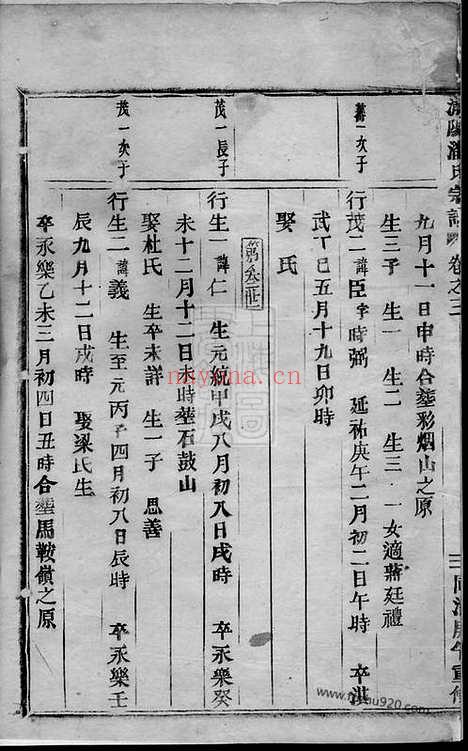 潘氏宗譜 卷之三
九月十一日申時合塟彩烟山之原
生三子 生一 生二 生三 一女適蔣廷禮
壽一次子
行茂二諱臣字時弼 延祐庚午二月初二日午時 卒洪
武丁巳五月十九日卯時
娶氏
第六世
茂一長子
行生一諱仁 生元統甲戌八月初八日戌時 卒永樂癸
未十二月十二日未時塟石鼓山
娶杜氏 生卒未詳 生一子 思善
茂一次子
行生二諱義 生至元丙子四月初八日辰時 卒永樂壬
辰九月十二日戌時 娶梁氏生
卒永樂乙未三月初四日丑時合塟馬鞍嶺之原
nayona.cn